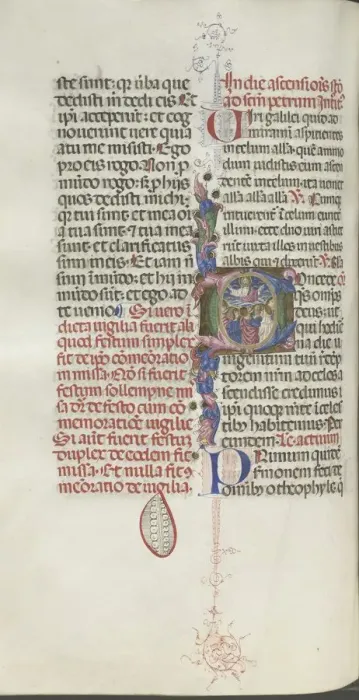 ste sunt: qr uba que
dedisti m dedi eis Et
ipi acceperut: et cog
nouerunt uere quia
a tu me misisti. Ego
pro eis rogo. Non p
mudo rogo: s phijs
quos dedisti michi:
qr tui sunt: et mea oia
tua sunt: et tua mea
sunt: et clarificatus
sum in eis. Et iam n
sum i mudo: et hij in
mudo sut: et ego ad
te uenio. Si uero i
dicta uigilia fuerit ali
quod festum simplex
fit de ipo comemoratio
in missa. Et si fuerit
festum sollempne mi
sa dr de festo cum co
memoratione uigilie
Si aut fuerit festum
duplex de eodem fit
missa. Et nulla fit
memoratio de uigilia.
In die ascensiois sto
ad scm petrum Introit
Uiri galilei quid ad
miramini aspicientes
in celum alla: que amo
dum uidistis eum asce
dente in celum: ita ueniet
alla alla alla
intuerent i celum eunte
illum: ecce duo uiri astite
rut iuxta illos in uestibus
albis qui et dixerut
Concede
qs omps
deus: ut
qui hodie
na die u
nigenitum tuu rede
torem nrm ad celos a
scendisse credimus:
ipi quoque mte i celes
tibus habitemus. Per
eundem. Le. actuum
Primum quide
sermonem feci de
omibus o theophyle